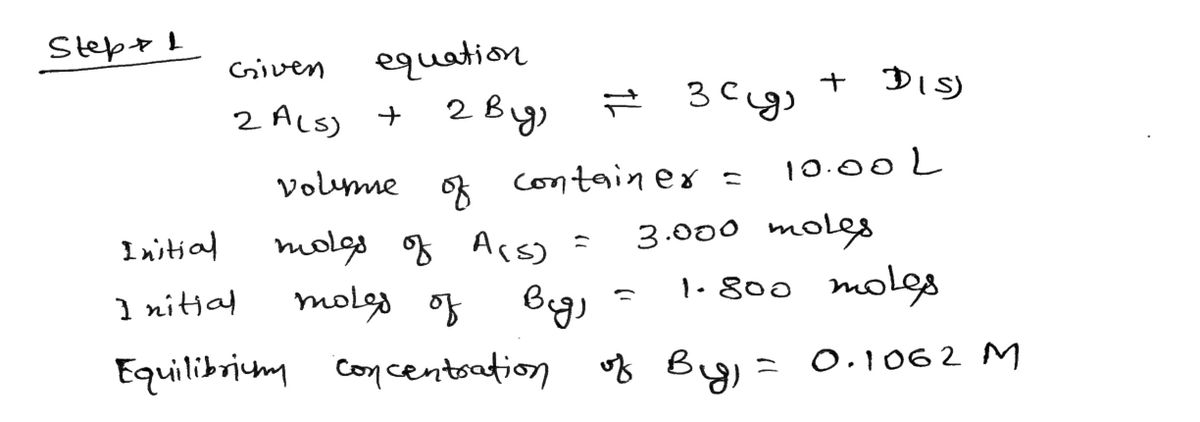 Step → 1
Given equation
2 A(s) + 2 B(g) ⇌ 3 C(g) + D(s)
volume of container = 10.00 L
Initial moles of A(s) = 3.000 moles
Initial moles of B(g) = 1.800 moles
Equilibrium concentration of B(g) = 0.1062 M